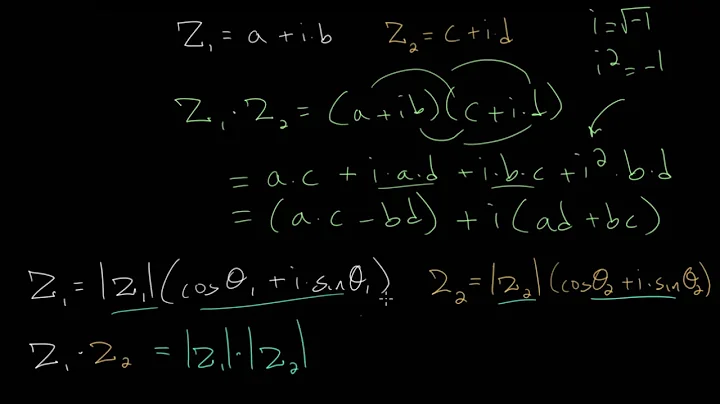 Z₁ = a + i·b   Z₂ = c + i·d   i = √-1
i² = -1
Z₁ · Z₂ = (a + ib)(c + i·d)
= a·c + i·a·d + i·b·c + i²·b·d
= (a·c - bd) + i(ad + bc)
Z₁ = |Z₁|(cosθ₁ + i·sinθ₁)   Z₂ = |Z₂|(cosθ₂ + i·sinθ₂)
Z₁ · Z₂ = |Z₁|·|Z₂|